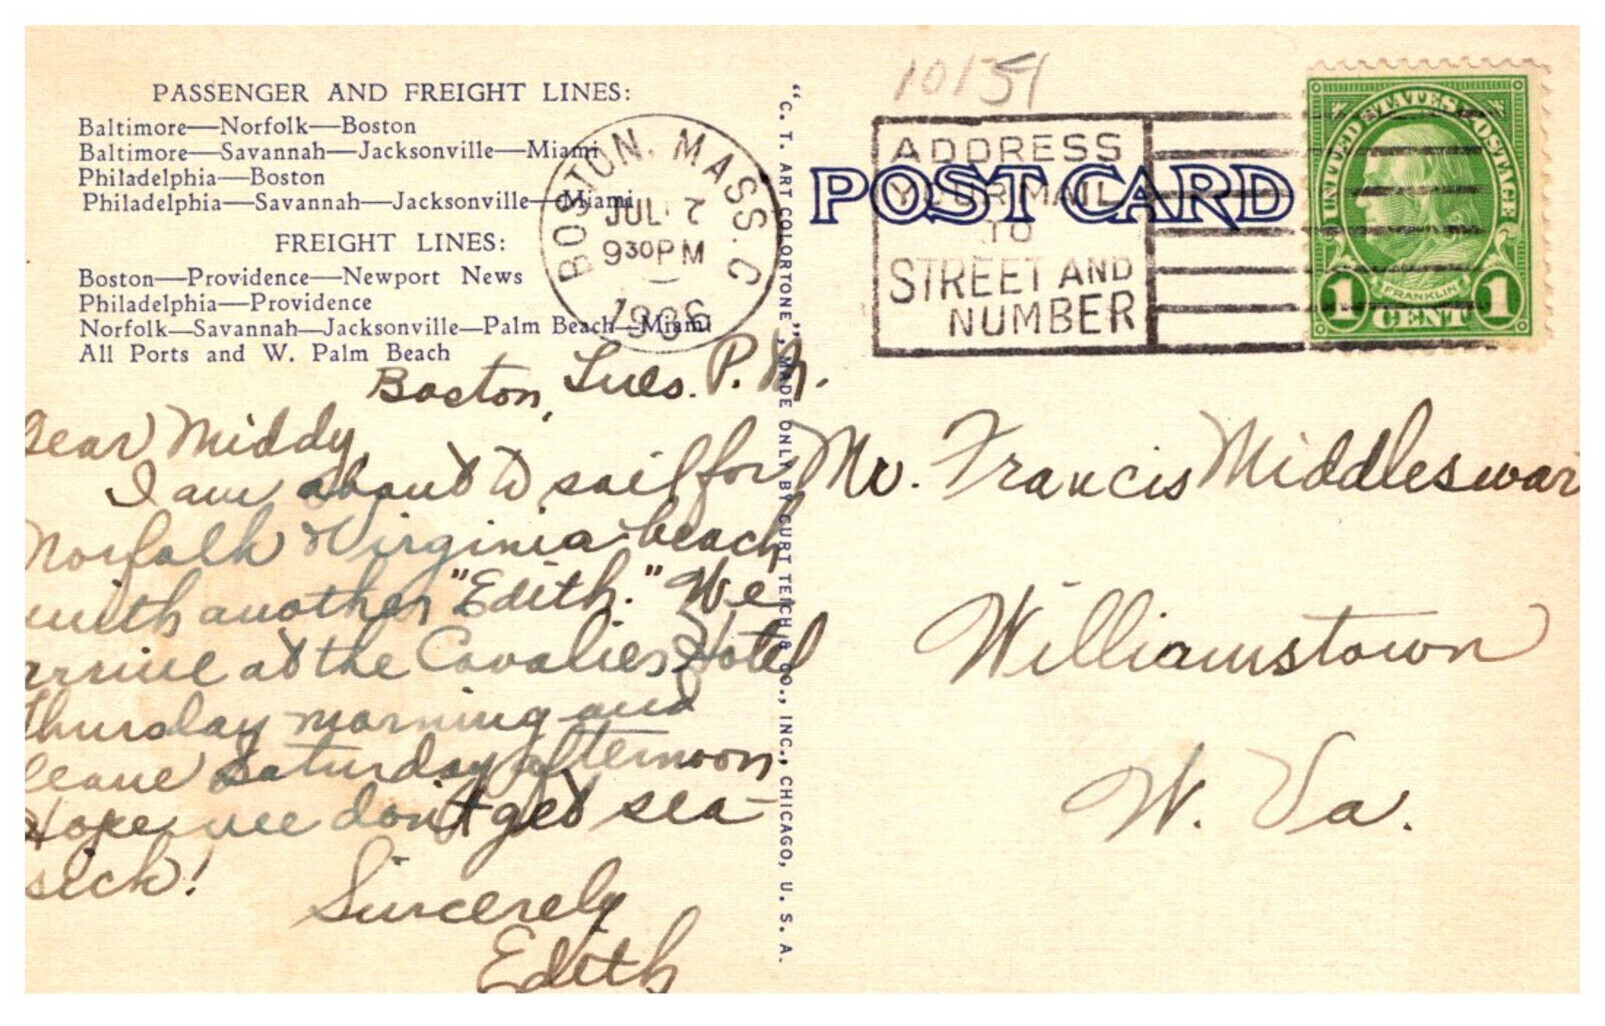 PASSENGER AND FREIGHT LINES:
Baltimore—Norfolk—Boston
Baltimore—Savannah—Jacksonville—Miami
Philadelphia—Boston
Philadelphia—Savannah—Jacksonville—Miami
FREIGHT LINES:
Boston—Providence—Newport News
Philadelphia—Providence
Norfolk—Savannah—Jacksonville—Palm Beach—Miami
All Ports and W. Palm Beach
BOSTON, MASS. C
JUL 7
9 30 PM
1936
"C. T. ART COLORTONE", MADE ONLY BY CURT TEICH & CO., INC., CHICAGO, U. S. A.
10151
ADDRESS
YOUR MAIL
TO
STREET AND
NUMBER
POST CARD
UNITED STATES POSTAGE
FRANKLIN
1 CENT 1
Boston, Tues. P. M.
Dear Middy,
I am about to sail for
Norfolk & Virginia beach
with another "Edith." We
arrive at the Cavalier Hotel
Thursday morning and
leave Saturday afternoon
Hope we don't get sea-
sick!
Sincerely
Edith
Mr. Francis Middleswar
Williamstown
W. Va.